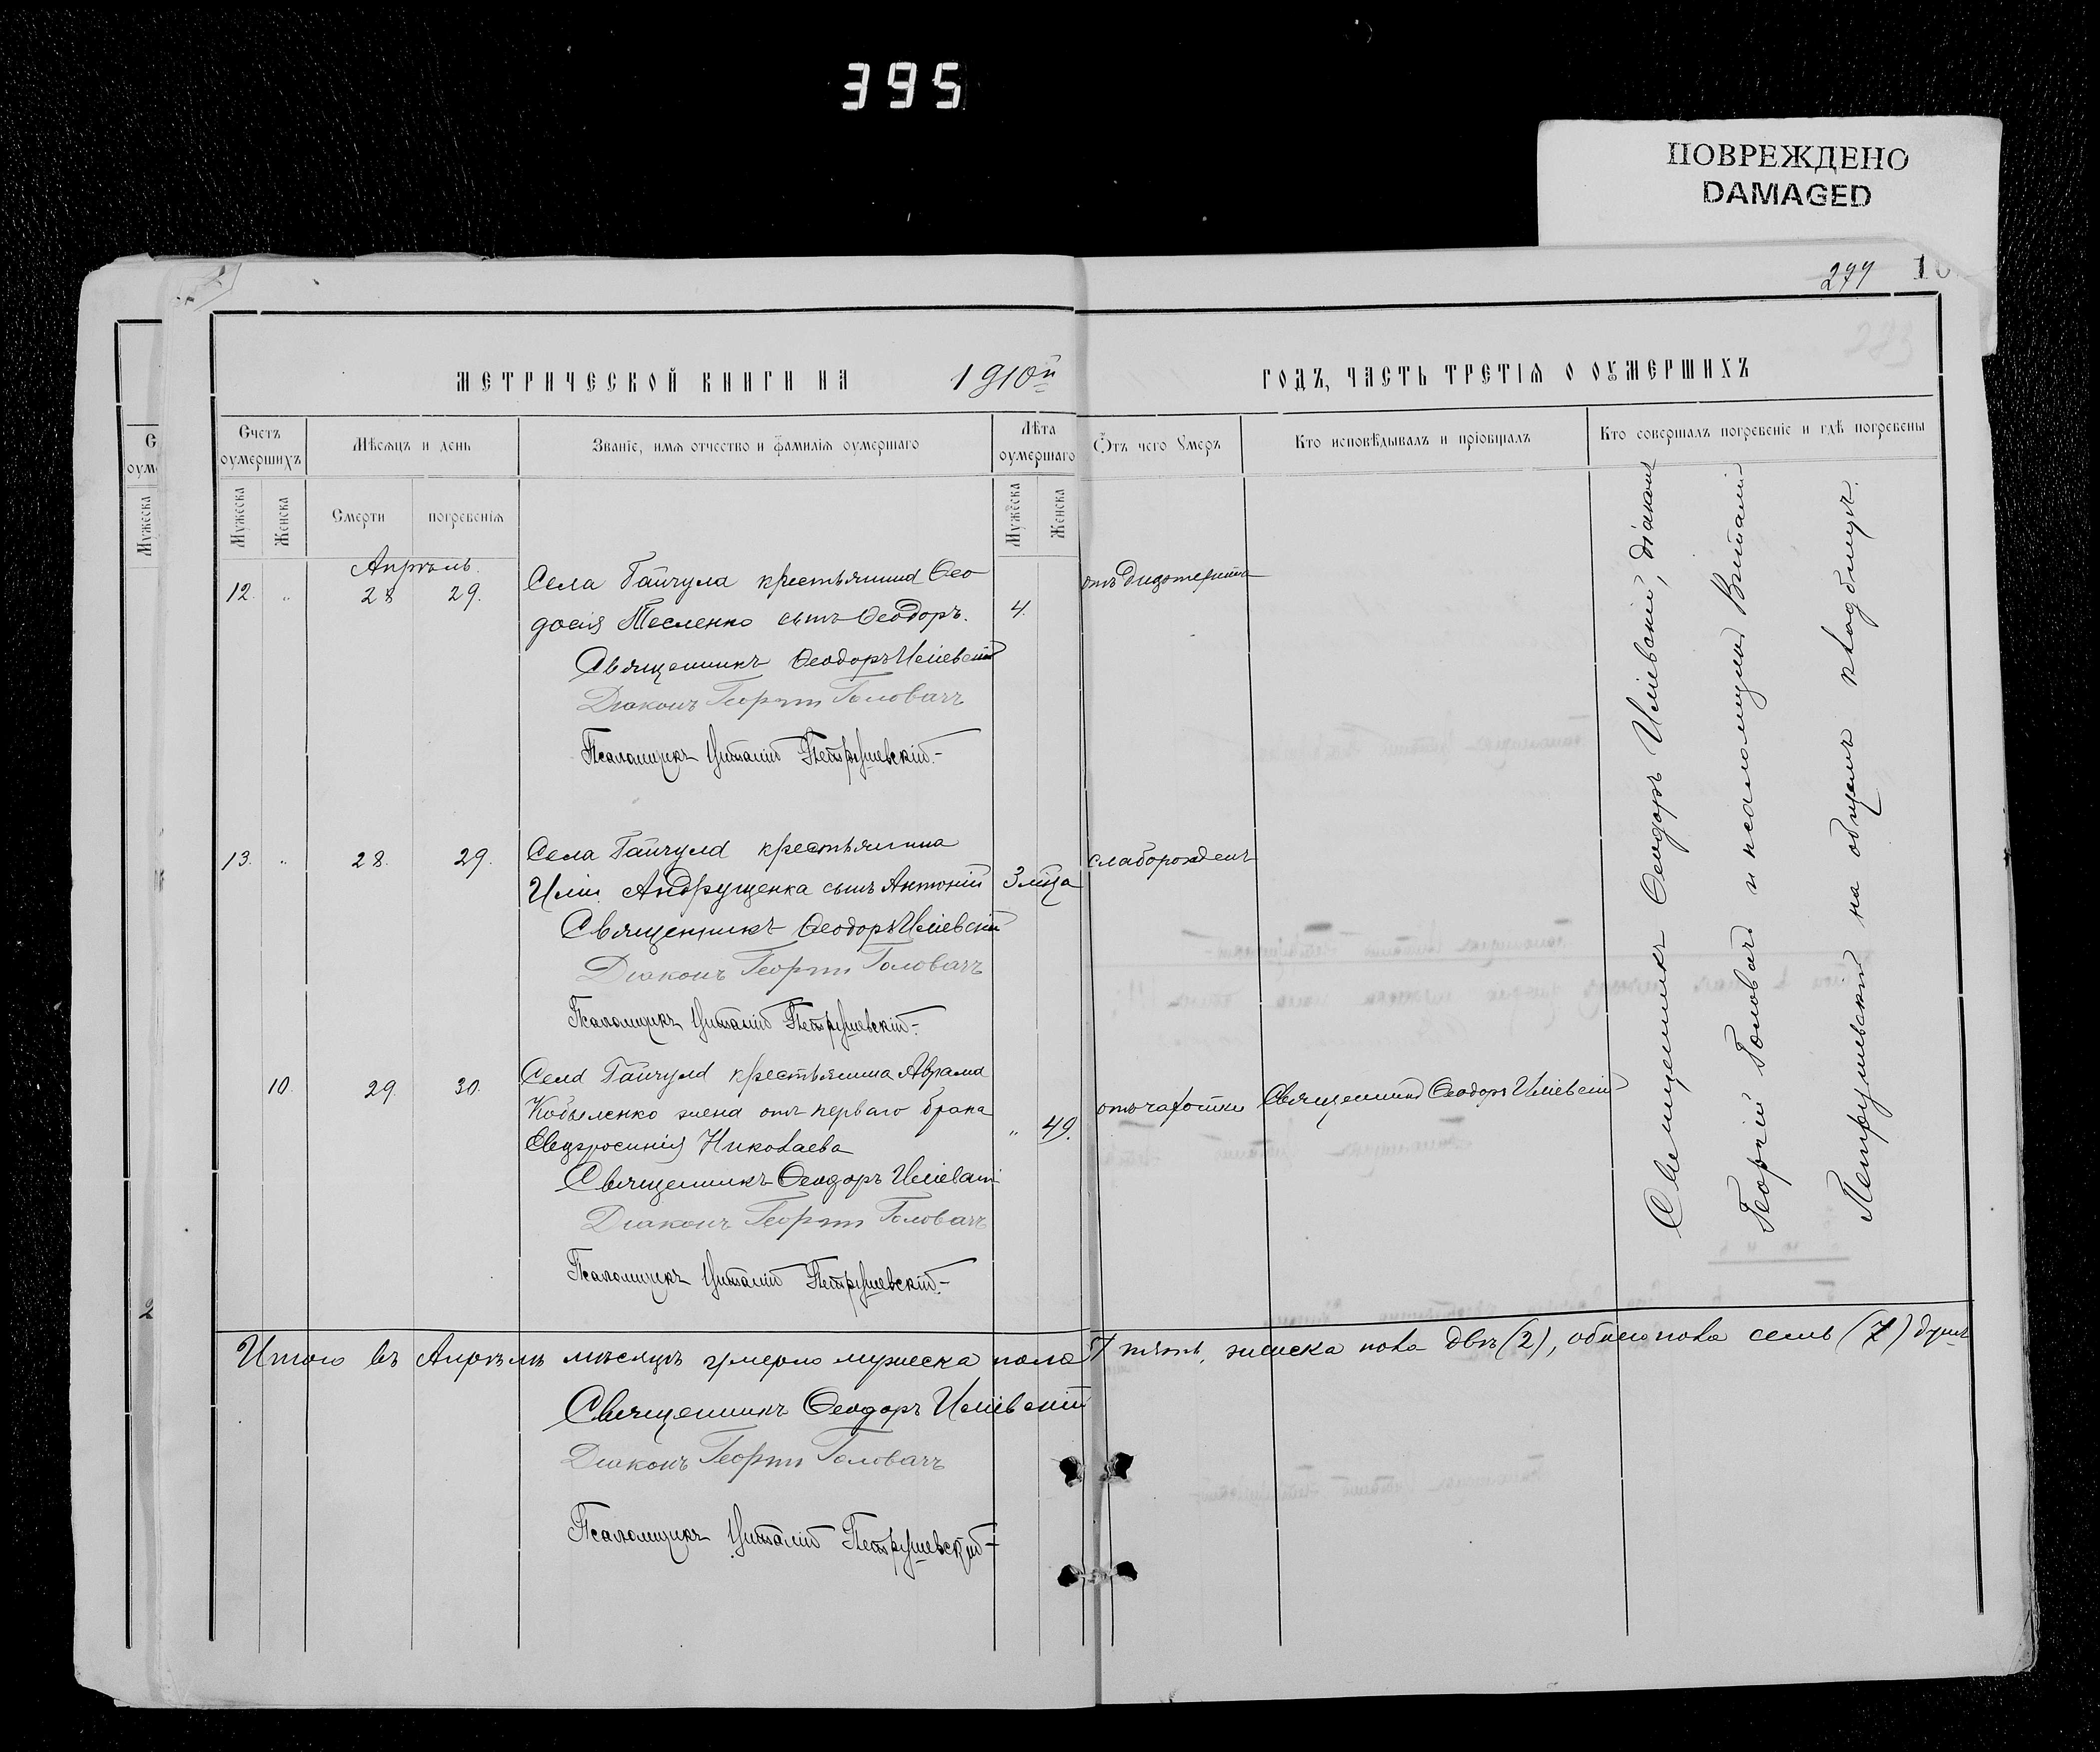 395
ПОВРЕЖДЕНО
DAMAGED
277
10
283
МЕТРИЧЕСКОЙ КНИГИ НА 1910й ГОДЪ, ЧАСТЬ ТРЕТІЯ О ОУМЕРШИХЪ
Счетъ оумершихъ
Мѣсяцъ и день
Званіе, имя отчество и фамилія оумершаго
Лѣта оумершаго
Отъ чего Умеръ
Кто исповѣдывалъ и пріобщалъ
Кто совершалъ погребеніе и гдѣ погребены
Мужеска
Женска
Смерти
погребенія
Мужеска
Женска
Апрѣль.
12. „ 28 29. Села Гайчула крестьянина Ѳео
досія Тесленко сынъ Ѳеодоръ. 4. отъ дифтерита
Священникъ Ѳеодоръ Иліевскій
Діаконъ Георгій Головачъ
Псаломщикъ Виталій Петрушевскій.
13. „ 28. 29. Села Гайчула крестьянина слаборожденъ
Иліи Андрущенка сынъ Антоній 3 мца
Священникъ Ѳеодоръ Иліевскій
Діаконъ Георгій Головачъ
Псаломщикъ Виталій Петрушевскій.
10. 29. 30. Села Гайчула крестьянина Аврама
Кобыленко жена отъ перваго брака отъ чахотки Священникъ Ѳеодоръ Иліевскій
Евфросинія Николаева „ 49.
Священникъ Ѳеодоръ Иліевскій
Діаконъ Георгій Головачъ
Псаломщикъ Виталій Петрушевскій.
Священникъ Ѳеодоръ Иліевскій, діаконъ
Георгій Головачъ и псаломщикъ Виталій
Петрушевскій на общемъ кладбищѣ.
Итого въ Апрѣлѣ мѣсяцѣ умерло мужеска пола пять, женска пола двѣ (2), обоего пола семь (7) душъ
Священникъ Ѳеодоръ Иліевскій
Діаконъ Георгій Головачъ
Псаломщикъ Виталій Петрушевскій